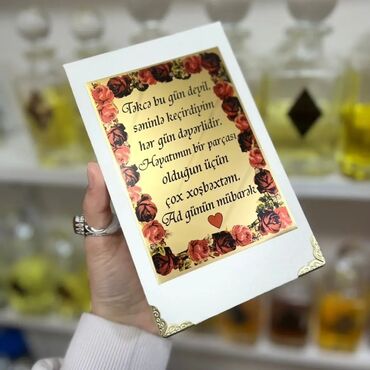 Təkcə bu gün deyil,
səninlə keçirdiyim
hər gün dəyərlidir.
Həyatımın bir parçası
olduğun üçün
çox xoşbəxtəm.
Ad günün mübarək